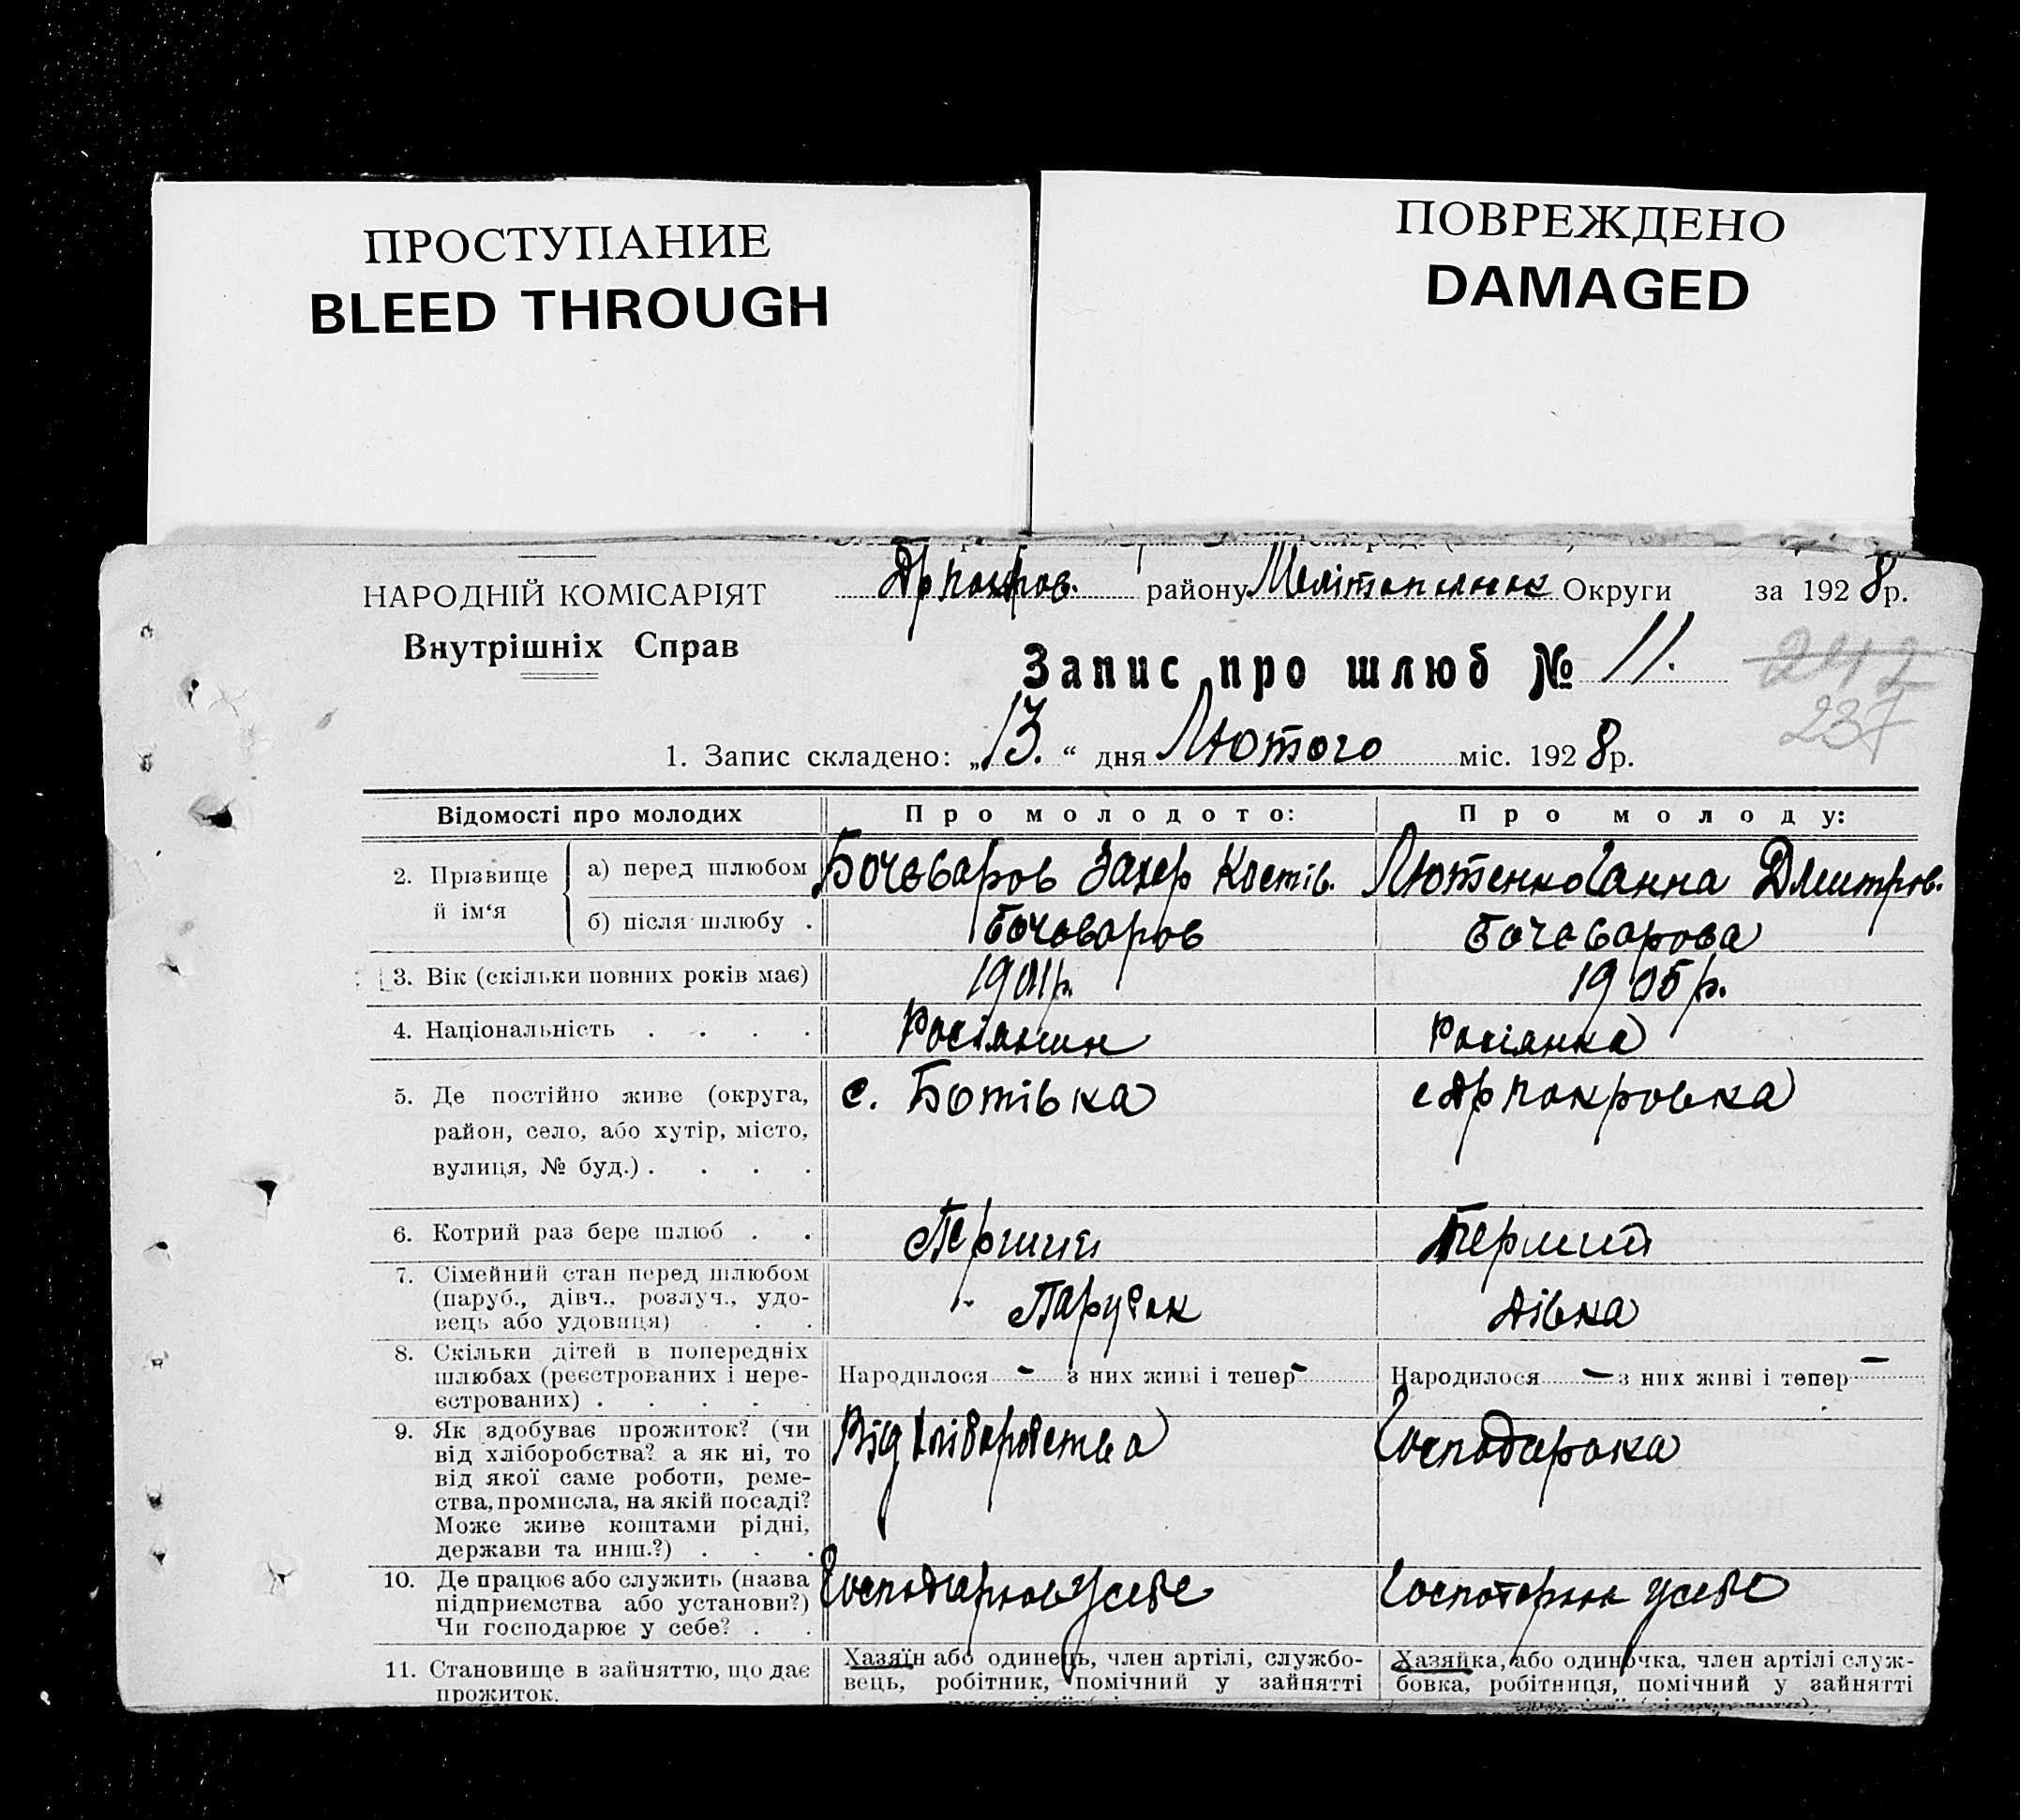 ПРОСТУПАНИЕ
BLEED THROUGH
ПОВРЕЖДЕНО
DAMAGED
НАРОДНІЙ КОМІСАРІЯТ
Внутрішніх Справ
району Округи за 1928 р.
Запис про шлюб № 11.
242
237
1. Запис складено: „13.“ дня Лютого міс. 1928 р.
Відомості про молодих
Про молодого:
Про молоду:
2. Прізвище й ім‘я
а) перед шлюбом
Бочеваров Захар Костів.
Лютенко Ганна Дмитров.
б) після шлюбу .
Бочеваров
Бочеварова
3. Вік (скільки повних років має)
1901 р.
1905 р.
4. Національність . . . .
Росіянин
Росіянка
5. Де постійно живе (округа,
район, село, або хутір, місто,
вулиця, № буд.) . . . .
с. Ботівка
с Ар покровка
6. Котрий раз бере шлюб . .
Перший
Перший
7. Сімейний стан перед шлюбом
(паруб., дівч., розлуч., удо-
вець або удовиця) . .
Парубок
Дівка
8. Скільки дітей в попередніх
шлюбах (реєстрованих і нере-
єстрованих) . . . . .
Народилося - з них живі і тепер -
Народилося - з них живі і тепер -
9. Як здобуває прожиток? (чи
від хліборобства? а як ні, то
від якої саме роботи, реме-
ства, промисла, на якій посаді?
Може живе коштами рідні,
держави та инш.?) . . .
Від хліборобства
Господарока
10. Де працює або служить (назва
підприємства або установи?)
Чи господарює у себе? . .
Господарює у себе
у себе
11. Становище в зайняттю, що дає
прожиток.
Хазяїн або одинець, член артілі, службо-
вець, робітник, помічний у зайнятті
Хазяйка, або одиночка, член артілі служ-
бовка, робітниця, помічний у зайнятті